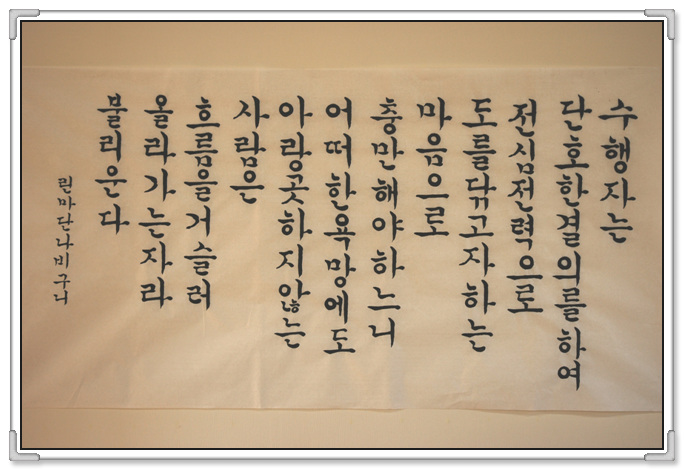 수행자는
단호한결의를하여
전심전력으로
도를닦고자하는
마음으로
충만해야하느니
어떠한욕망에도
아랑곳하지않는
사람은
흐름을거슬러
올라가는자라
불리운다
린마단나비구니